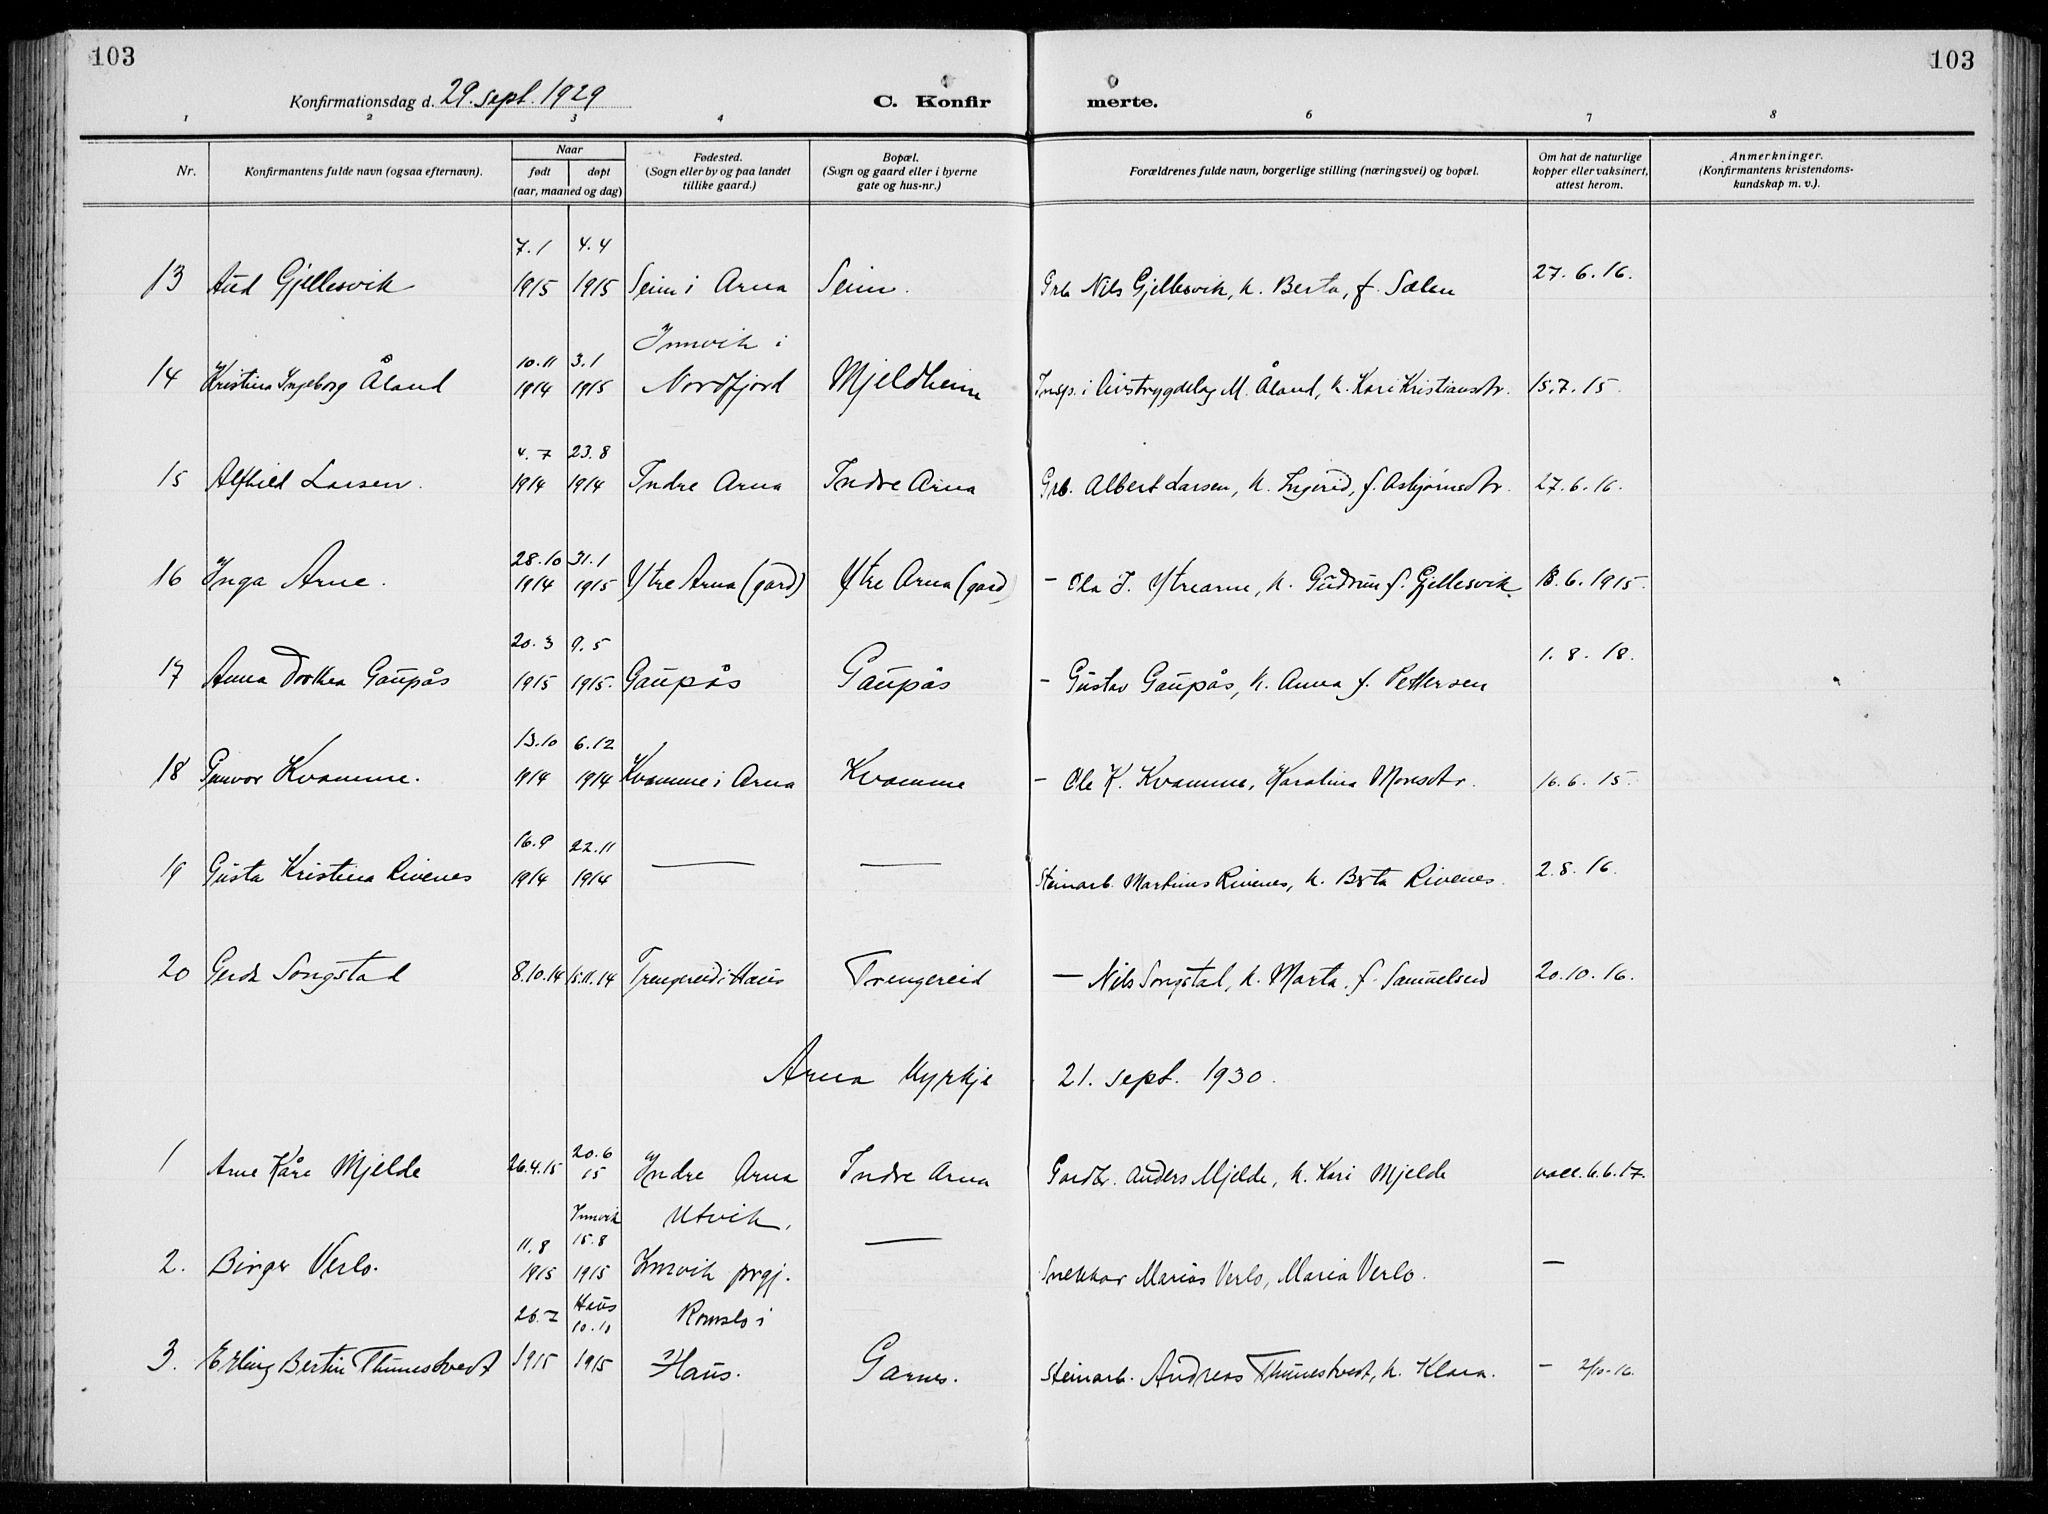 103
103
Konfirmationsdag d. 29. sept. 1929
C. Konfir
merte.
1 2 3 4 5 6 7 8
Nr.
Konfirmantens fulde navn (ogsaa efternavn).
Naar
født døpt
(aar, maaned og dag)
Fødested.
(Sogn eller by og paa landet
tillike gaard.)
Bopæl.
(Sogn og gaard eller i byerne
gate og hus-nr.)
Forældrenes fulde navn, borgerlige stilling (næringsvei) og bopæl.
Om hat de naturlige
kopper eller vaksinert,
attest herom.
Anmerkninger.
(Konfirmantens kristendoms-
kundskap m. v.).
7.1 4.4
13 Aud Gjellesvik 1915 1915 Seim i Arna Seim. Grb. Nils Gjellesvik, k. Berta, f. Sælen 27.6.16.
Innvik i
10.11 3.1
14 Kristina Ingeborg Åland 1914 1915 Nordfjord Mjeldheim Insp. i M. Åland, k. Kari Kristiansdtr. 15.7.15.
4.7 23.8
15 Alfhild Larsen. 1914 1914 Indre Arna Indre Arna Grb. Albert Larsen, k. Ingerid, f. Asbjørnsdtr. 27.6.16.
28.10 31.1
16 Inga Arne. 1914 1915 Ytre Arna (gård) Ytre Arna (gard) - Ola J. Ytrearne, k. Gudrun f. Gjellesvik 18.6.1915.
20.3 9.5
17 Anna Dorthea Gaupås 1915 1915. Gaupås Gaupås - Gustav Gaupås, k. Anna f. Pettersen 1.8.18.
13.10 6.12
18 Gunvor Kvamme. 1914 1914 Kvamme i Arna Kvamme - Ole K. Kvamme, Karolina Monsdtr. 16.6.15.
16.9 22.11
19 Gusta Kristina Rivenes 1914 1914 — — Steinarb. Martinus Rivenes, k. Berta Rivenes. 2.8.16.
20 Gerda Songstad 8.10.14 15.11.14 Trengereid i Haus Trengereid — Nils Songstad, k. Marta, f. Samuelsen 20.10.16.
Arna kyrkje 21. sept. 1930.
20.6
1 Arne Kåre Mjelde 26.4.15 15 Indre Arna Indre Arna Gardbr. Anders Mjelde, k. Kari Mjelde vacc. 6.6.17.
Innvik Utvik,
11.8 15.8
2. Birger Verlo. 1915 1915 Innvik prgj. — Snekkar Marius Verlo, Maria Verlo. —
26.7 Haus Romslo i
10.10
3. Erling Bertin Thunestvedt 1915 1915 Haus. Garnes. Steinarb. Andreas Thunestvedt, k. Klara. - 2/10-16.